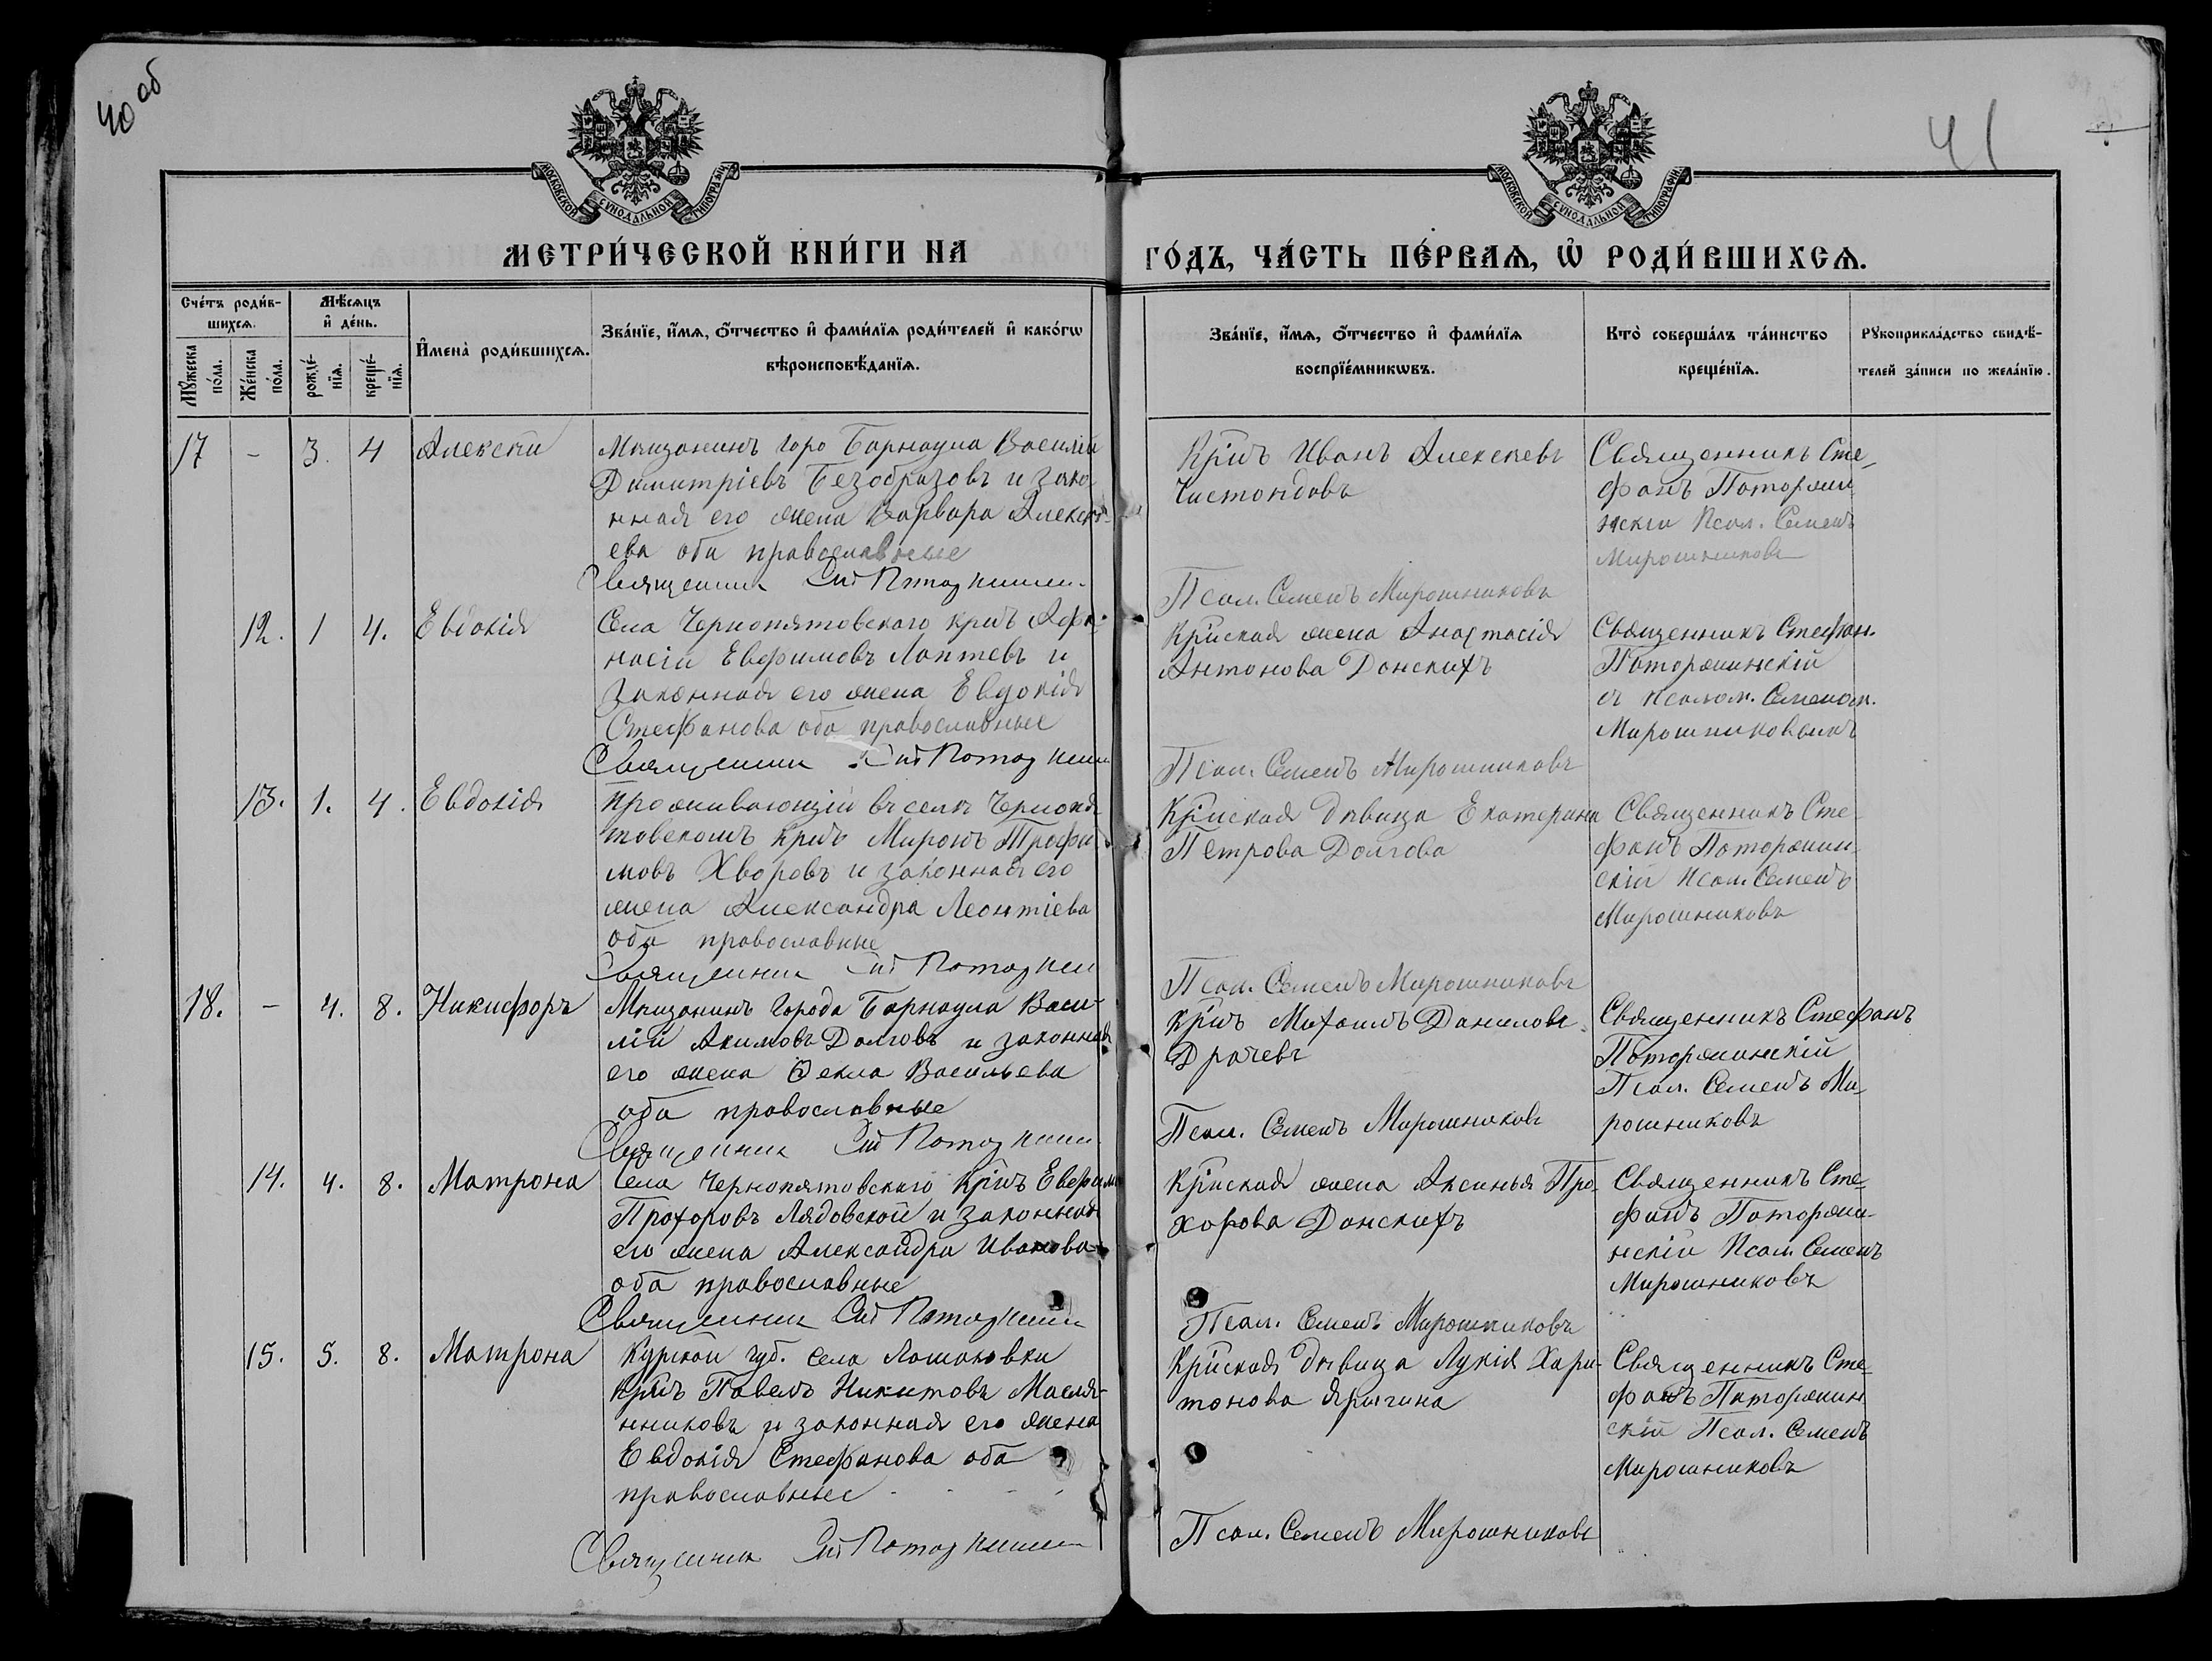 40 об
41
МОСКОВСКОЙ СѴНОДАЛЬНОЙ ТИПОГРАФІИ
МОСКОВСКОЙ СѴНОДАЛЬНОЙ ТИПОГРАФІИ
МЕТРИ́ЧЕСКОЙ КНИ́ГИ НА
ГО́ДЪ, ЧА́СТЬ ПЕ́РВАѦ, Ѡ҆ РОДИ́ВШИХСѦ.
Сче́тъ роди́в-
шихсѧ.
Мѣ́сѧцъ
и҆ де́нь.
Мꙋ́жеска
по́ла.
Же́нска
по́ла.
рожде́-
нїѧ.
креще́-
нїѧ.
И҆мена̀ роди́вшихсѧ.
Зва́нїе, и҆́мѧ, ѻ҆́тчество и҆ фами́лїѧ роди́телей и҆ како́гѡ
вѣроисповѣ́данїѧ.
Зва́нїе, и҆́мѧ, ѻ҆́тчество и҆ фами́лїѧ
воспрїе́мникѡвъ.
Кто̀ соверша́лъ та́инство
креще́нїѧ.
Рꙋкоприкла́дство свидѣ́-
телей за́писи по жела́нїю.
17 - 3. 4 Алексѣй
Мѣщанинъ горо Барнаула Василій
Димитріевъ Безобразовъ и зако
нная его жена Варвара Алексѣ-
ева оба православные
Священникъ Потор
Кр̃інъ Иванъ Алексѣевъ
Псал. Семенъ Мирошниковъ
Священникъ Сте-
фанъ Поторжин
нскій Псал. Семенъ
Мирошниковъ
12. 1 4. Евдокія
Села Чернопятовскаго кр̃інъ Афа-
насій Евфимовъ Лаптевъ и
законная его жена Евдокія
Стефанова оба православные
Священникъ
Кр̃інская жена Анастасія
Антонова Донскихъ
Псал. Семенъ Мирошниковъ
Священникъ Стефан.
Поторжинскій
съ псалом. Семеном.
Мирошниковымъ
13. 1. 4. Евдокія
Проживающій въ селѣ Чернопя
товскомъ кр̃інъ Миронъ Трофи
мовъ Хворовъ и законная его
жена Александра Леонтіева
оба православные
Священникъ
Кр̃інская дѣвица Екатерина
Петрова Долгова
Псал. Семенъ Мирошниковъ
Священникъ Сте-
фанъ Поторжин-
скій Псал. Семенъ
Мирошниковъ
18. - 4. 8. Никифоръ
Мѣщанинъ города Барнаула Васи-
лій Акимовъ Долговъ и законная
его жена Ѳекла Васильева
оба православные
Священникъ
Кр̃інъ Михаилъ Даниловъ
Драчевъ
Псал. Семенъ Мирошниковъ
Священникъ Стефанъ
Поторжинскій
Псал. Семенъ Ми-
рошниковъ
14. 4. 8. Матрона
Села Чернопятовскаго кр̃інъ Евфим
Прохоровъ Лядовской и законная
его жена Александра Иванова
оба православные
Священникъ
Кр̃інская жена Аксинья Про-
хорова Донскихъ
Псал. Семенъ Мирошниковъ
Священникъ Сте-
фанъ Поторжи-
нскій Псал. Семенъ
Мирошниковъ
15. 5. 8. Матрона
Курской губ. села Ломаковки
кр̃інъ Павелъ Никитовъ Масля-
нниковъ и законная его жена
Евдокія Стефанова оба
православные
Священникъ
Кр̃інская дѣвица Лукія Хари-
тонова Ярыгина
Псал. Семенъ Мирошниковъ
Священникъ Сте-
фанъ Поторжин
скій Псал. Семенъ
Мирошниковъ